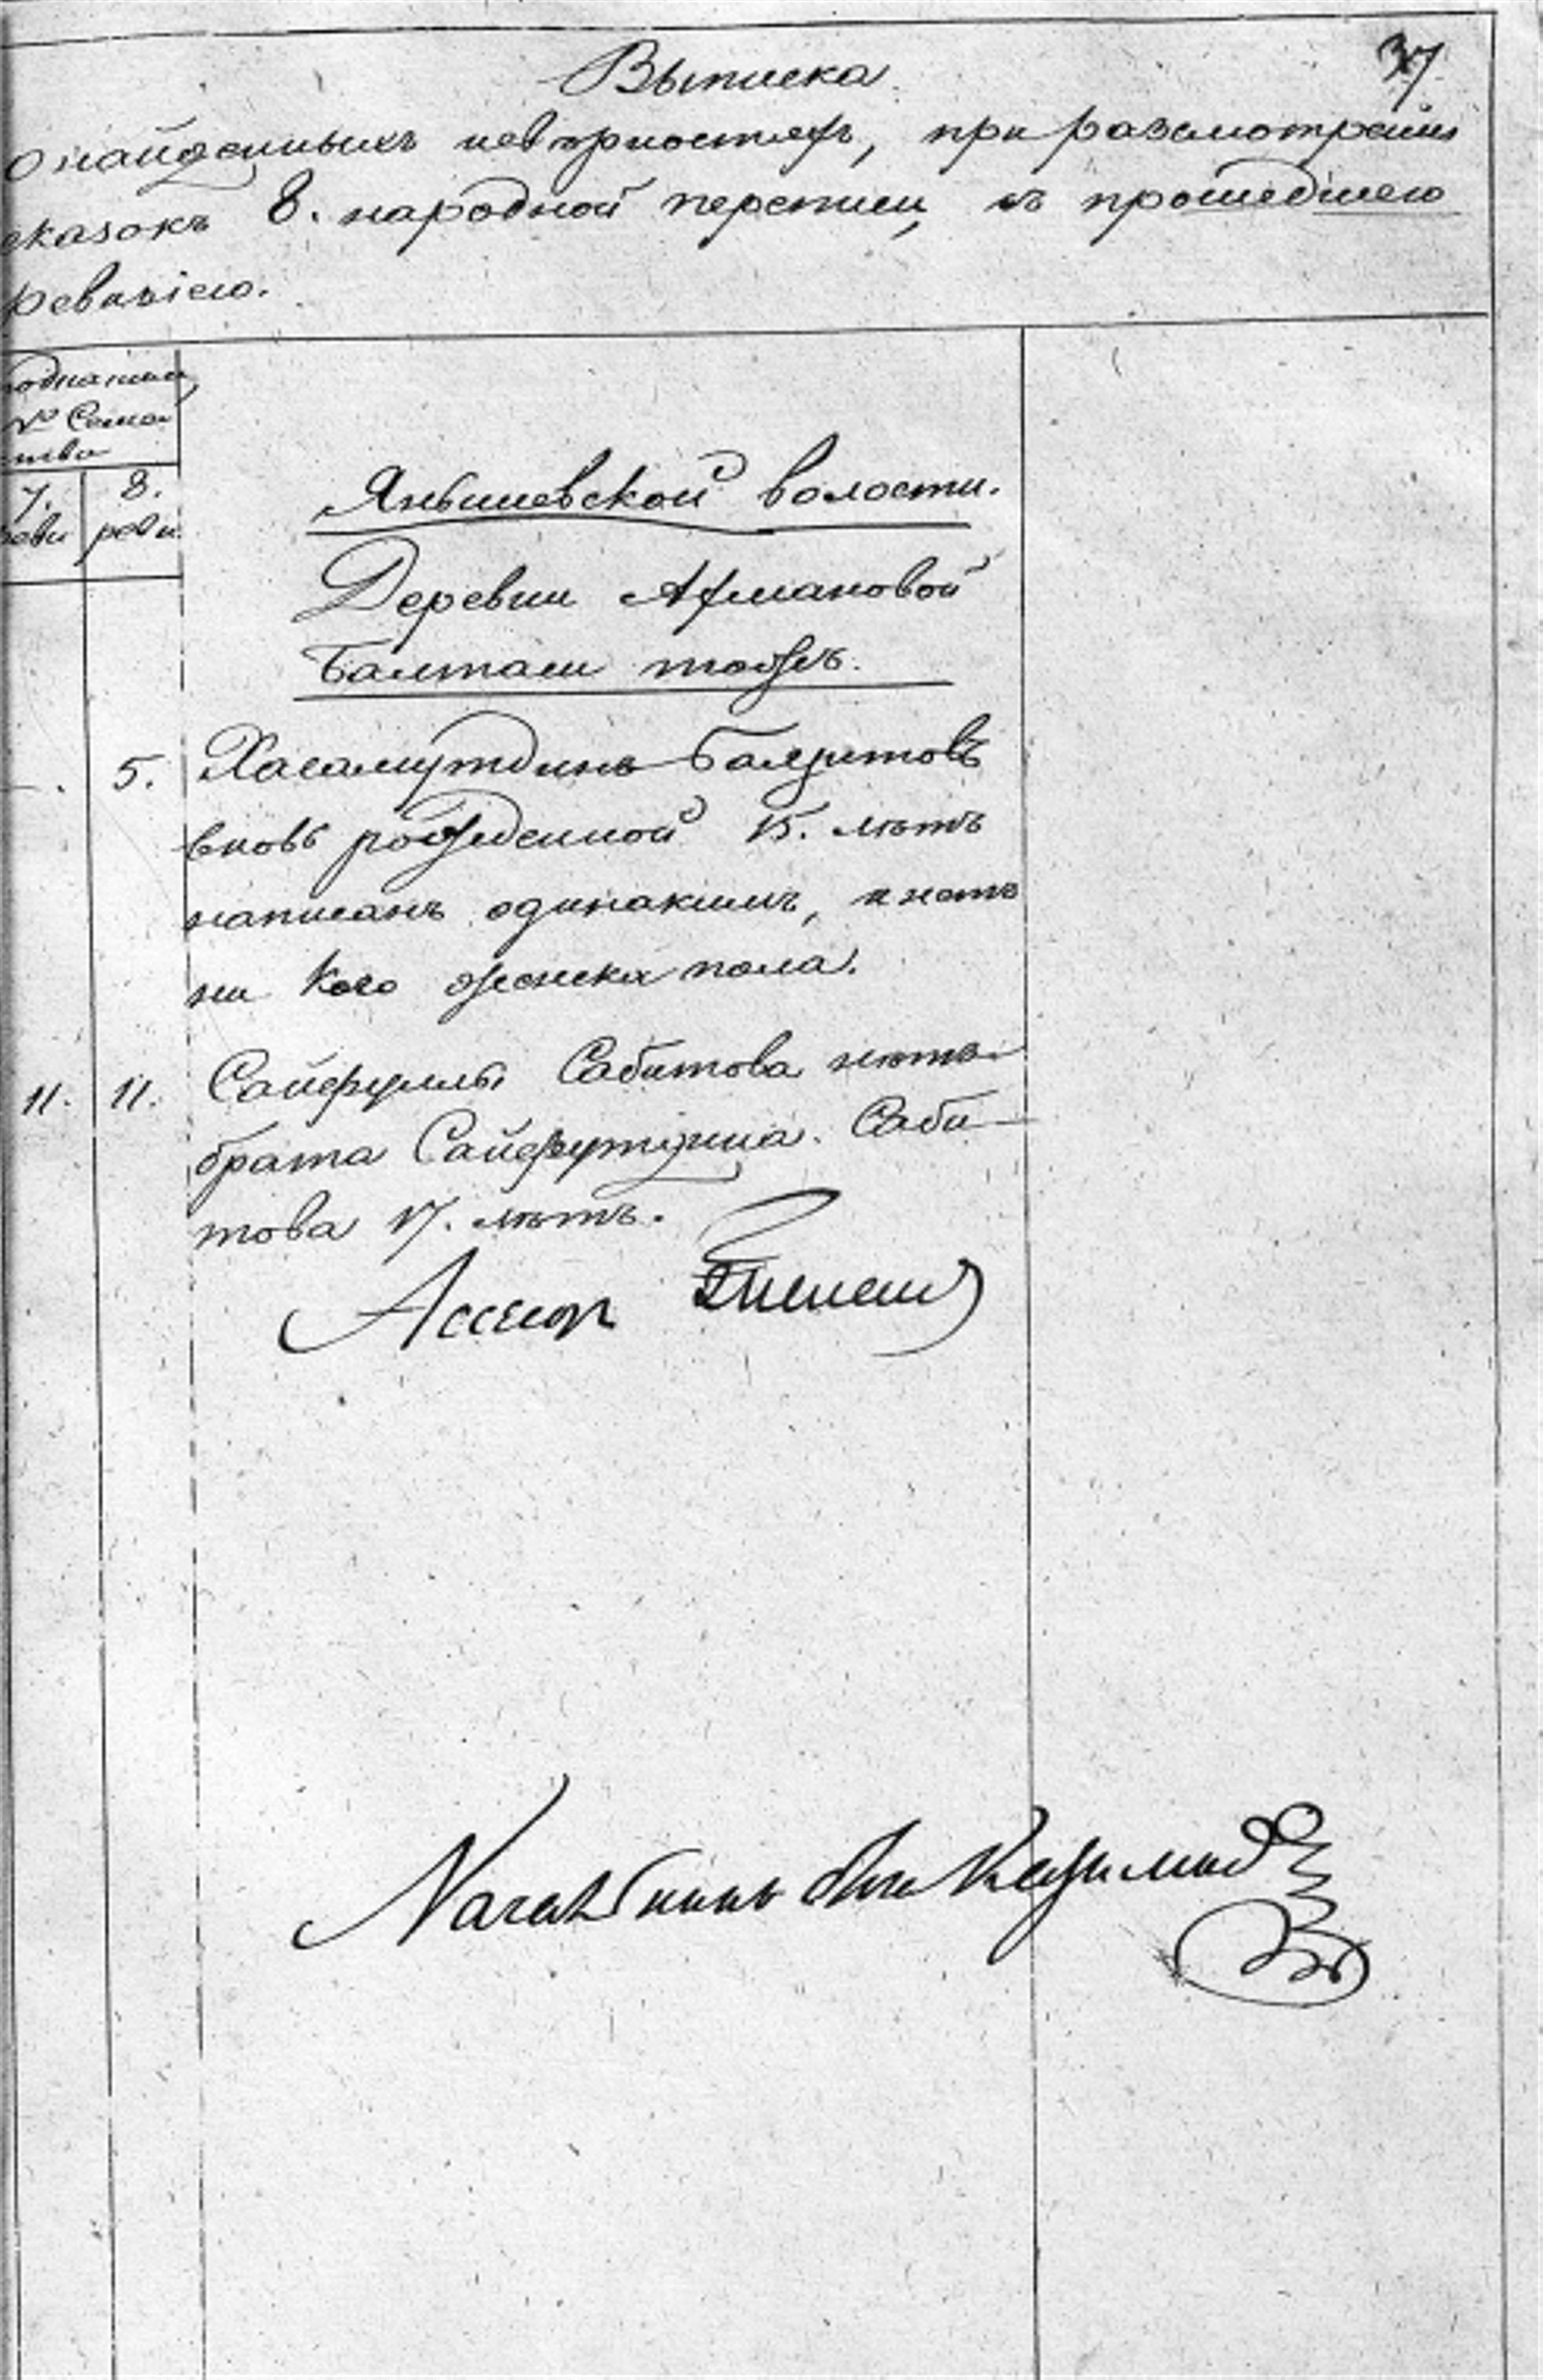 37
Выписка
О найденныхъ неверностяхъ, при разсмотреніи
сказокъ 8. народной переписи, съ прошедшею
ревизіею.
№ Семе-
ства
7. 8.
реви реви.
Янышевской волости.
Деревни Ахмановой
Балташ тожъ.
5. Хасамутдинъ Баязитовъ
вновь рожденной 15. лѣтъ
написанъ одинакимъ, и нетъ
ни кого женска пола.
11. 11. Сайфуллы Сабитова нѣтъ
брата Сайфутдина Саби-
това 17. лѣтъ.
Ассесоръ